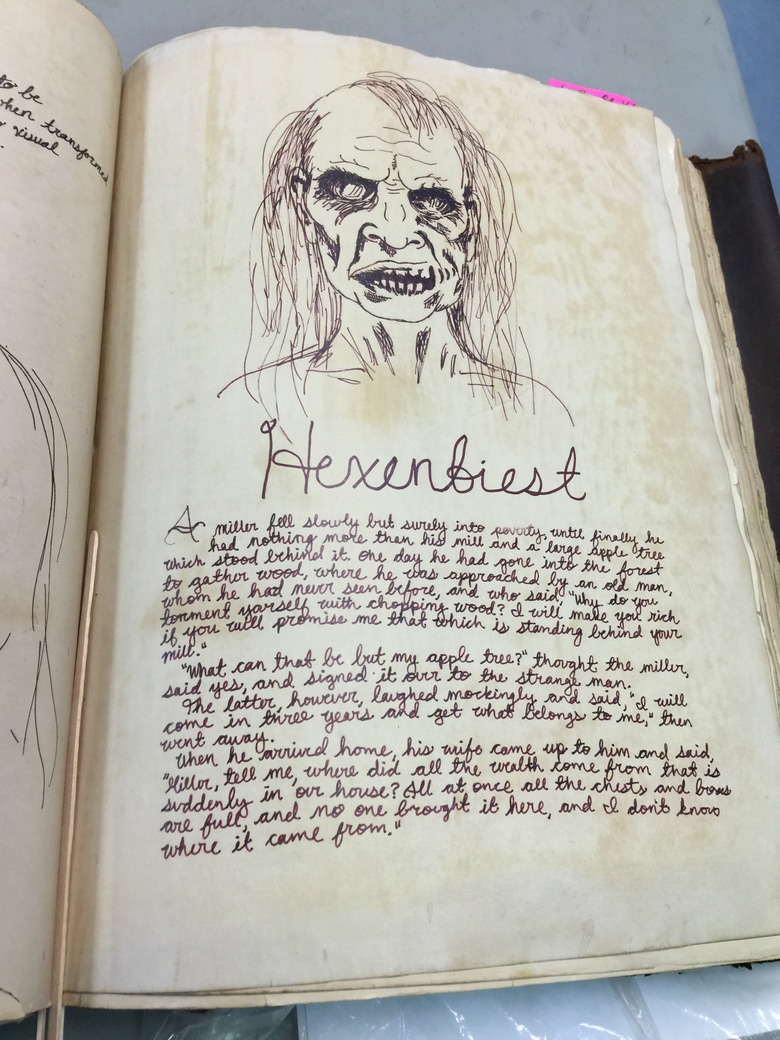 to be
when transformed
visual
Hexenbiest
A miller fell slowly but surely into poverty, until finally he
had nothing more than his mill and a large apple tree
which stood behind it. One day he had gone into the forest
to gather wood, where he was approached by an old man,
whom he had never seen before, and who said, "Why do you
torment yourself with chopping wood? I will make you rich
if you will promise me that which is standing behind your
mill."
"What can that be but my apple tree?" thought the miller,
said yes, and signed it over to the strange man.
The latter, however, laughed mockingly and said, "I will
come in three years and get what belongs to me," then
went away.
When he arrived home, his wife came up to him and said,
"Miller, tell me, where did all the wealth come from that is
suddenly in our house? All at once all the chests and boxes
are full, and no one brought it here, and I don't know
where it came from."